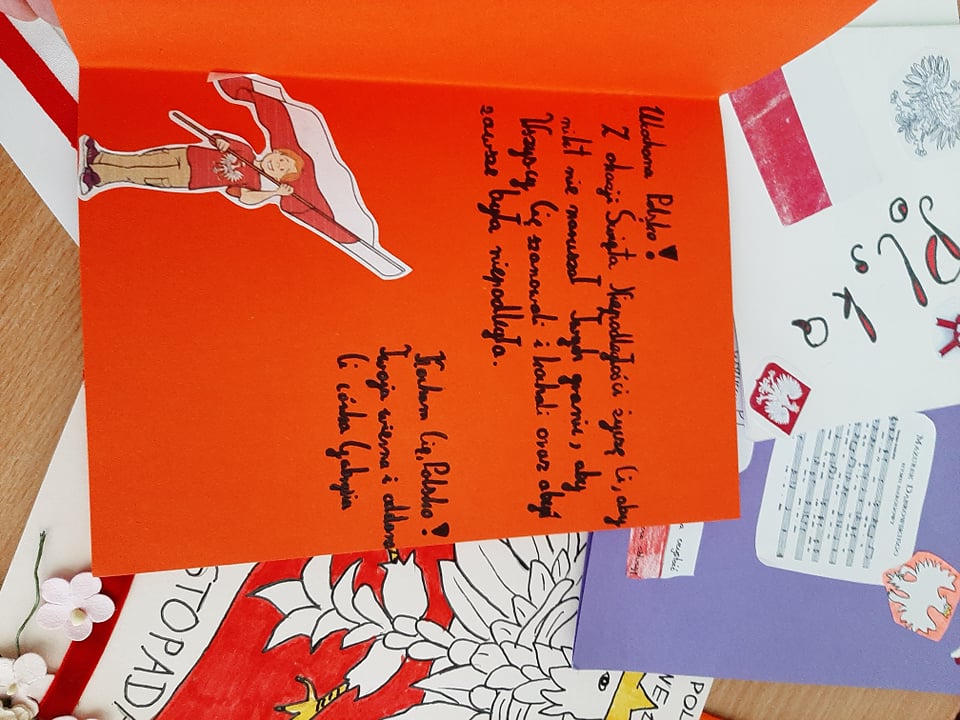 Ukochana Polsko!
Z okazji Święta Niepodległości życzę Ci, aby
nikt nie naruszał Twych granic, aby
Wszyscy Cię szanowali i kochali oraz abyś
zawsze była niepodległa.
Kocham Cię, Polsko!
Twoja wierna i oddana
Ci córka Gabrysia
Polska
MAZUREK DĄBROWSKIEGO
STOPADA
POL